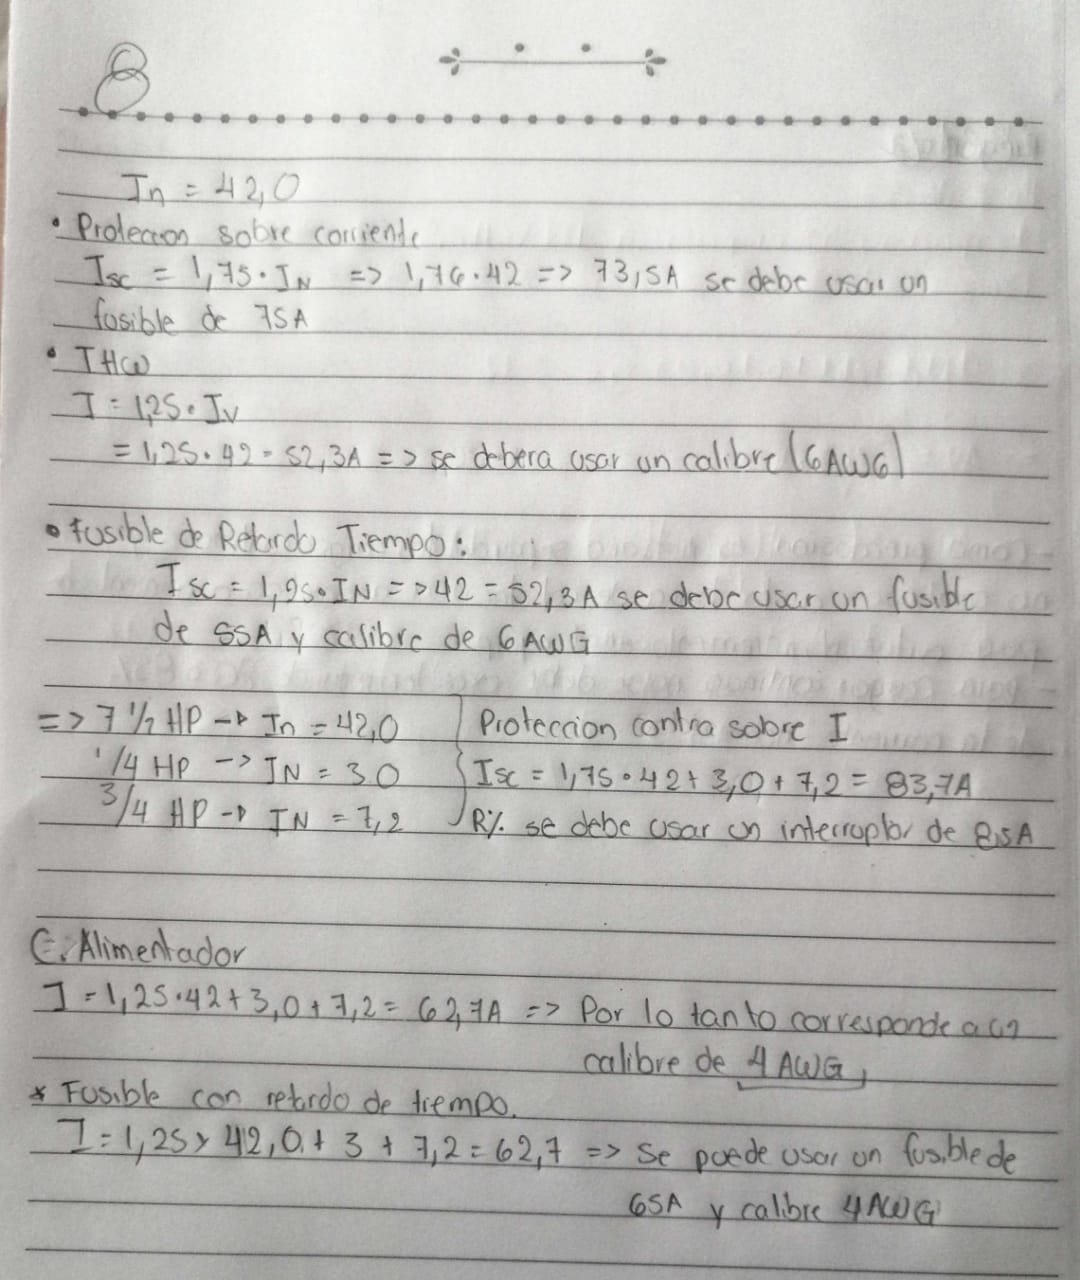 8
In = 42,0
• Proteccion sobre corriente
Isc = 1,75 · IN => 1,76 · 42 => 73,5A se debe usar un
fusible de 75A
• THW
I = 1,25 · IN
= 1,25 · 42 = 52,3A => se debera usar un calibre (6AWG)
• Fusible de Retardo Tiempo:
Isc = 1,25 · IN => 42 = 52,3A se debe usar un fusible
de 55A y calibre de 6AWG
=> 7 1/2 HP → In = 42,0 Proteccion contra sobre I
1/4 HP → IN = 3.0 Isc = 1,75 · 42 + 3,0 + 7,2 = 83,7A
3/4 HP → IN = 7,2 R% se debe usar un interruptor de 85A
C. Alimentador
I = 1,25 · 42 + 3,0 + 7,2 = 62,7A => Por lo tanto corresponde a un
calibre de 4 AWG
* Fusible con retardo de tiempo.
I = 1,25 x 42,0 + 3 + 7,2 = 62,7 => Se puede usar un fusible de
65A y calibre 4AWG